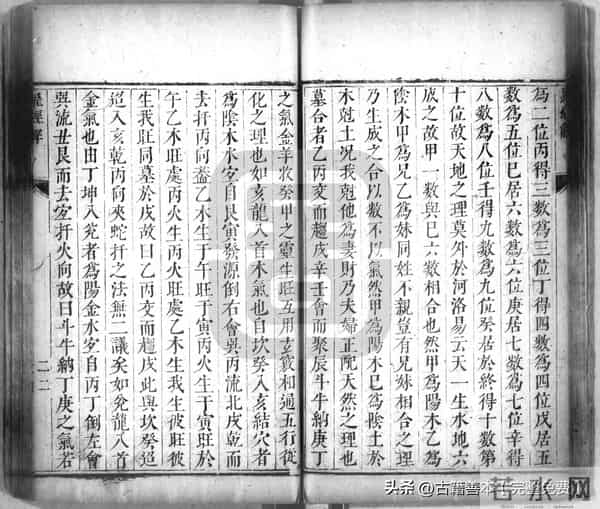 為二位丙得三數為三位丁得四數為四位戊居五
數為五位巳居六數為六位庚居七數為七位辛得
八數為八位壬得九數為九位癸居於終得十數第
十位故天地之理莫外於河洛易云天一生水地六
成之故甲一數與巳六數相合也然甲為陽木乙為
陰木甲為兄乙為妹同姓不親豈有兄妹相合之理
乃生成之合以數不以氣然甲為陽木巳為陰土於
木尅土况我尅他為妻財乃夫婦正配天然之理也
墓合者乙丙交而趨戌辛壬會而聚辰斗牛納庚丁
之氣金羊收癸甲之靈生旺互用玄竅相通五行從
化之理也如亥龍入首木氣也自坎癸入亥結穴者
為陰木水宜自艮寅發源倒右會巽丙流北戌乾而
去扦丙向葢乙木生于午旺于寅丙火生于寅旺於
午乙木旺處丙火生丙火旺處乙木生我生彼旺彼
生我旺同墓於戌故曰乙丙交而趨戌此與坎發造
迢入亥乾丙向夾蛇扦之法無二議矣如兌龍入首
金氣也由丁坤入兌者為陽金水宜自丙丁倒左會
巽流丑艮而去宜扦火向故曰斗牛納丁庚之氣若
二二
頭条 @古籍善本